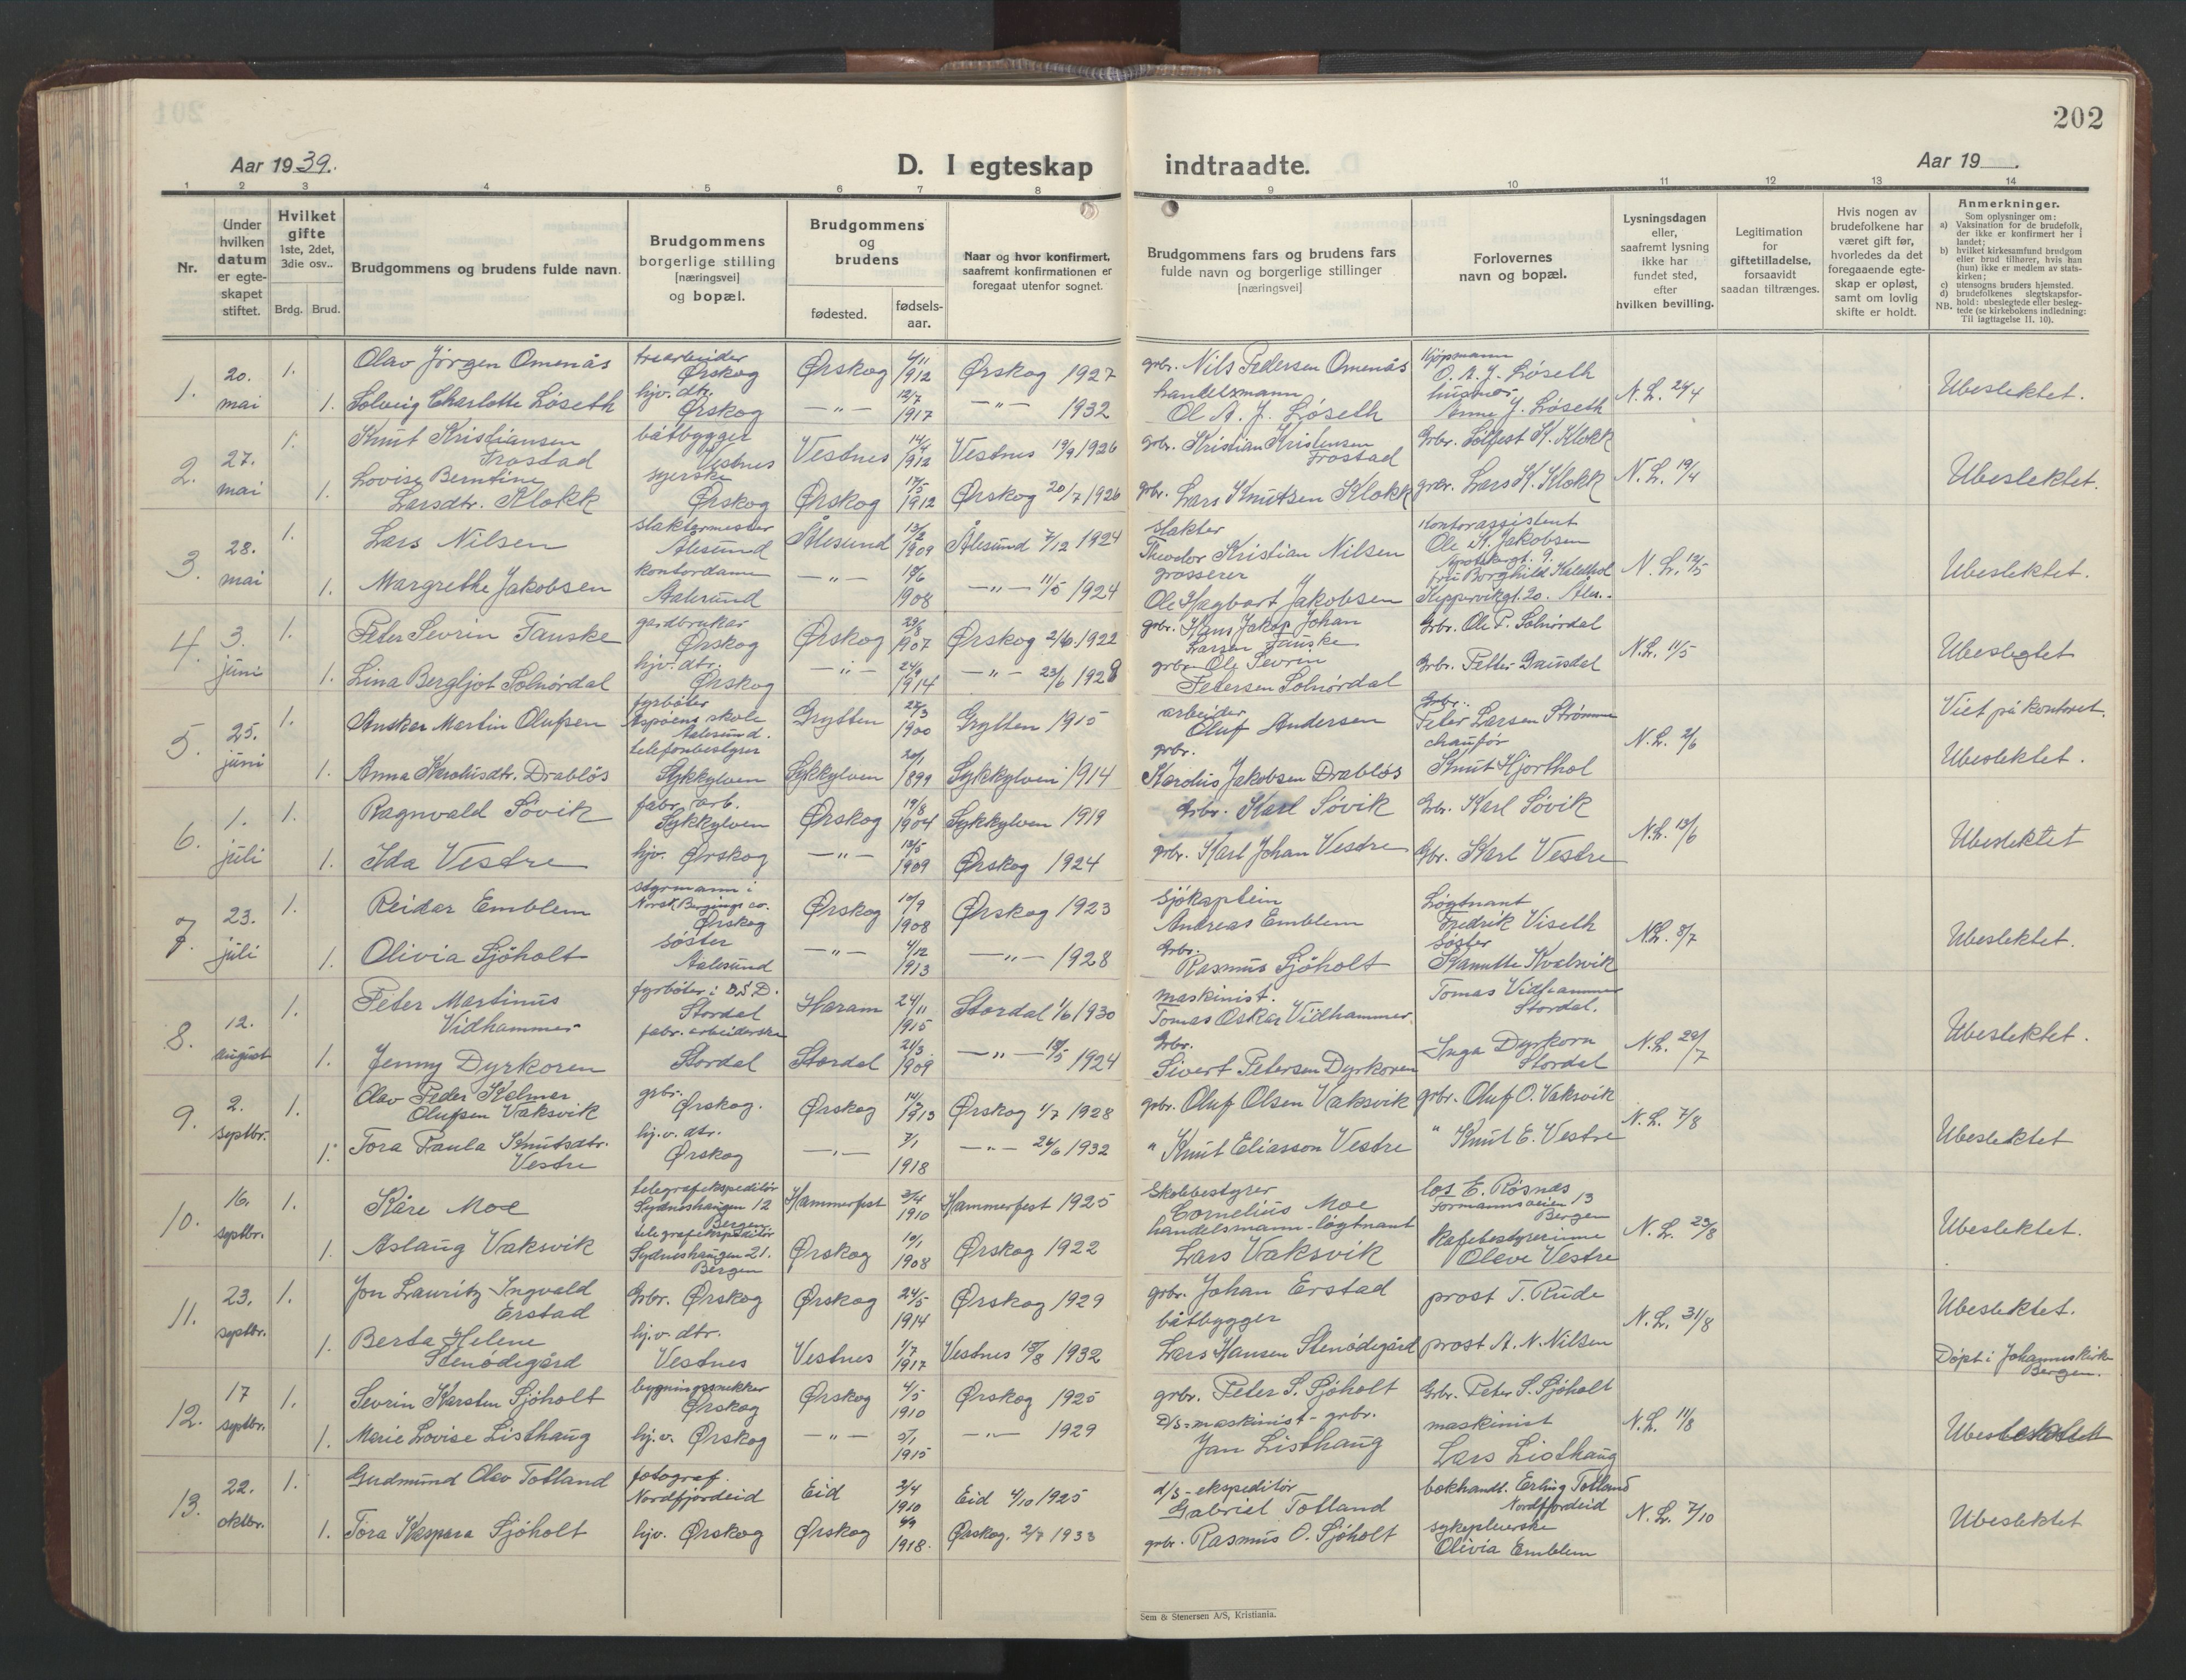 202
Aar 1939.
D. I egteskap indtraadte.
Aar 19
1 2 3 4 5 6 7 8 9 10 11 12 13 14
Nr.
Under hvilken datum er egte-skapet stiftet.
Hvilket gifte 1ste, 2det, 3die osv..
Brdg. Brud.
Brudgommens og brudens fulde navn.
Brudgommens borgerlige stilling [næringsvei] og bopæl.
Brudgommens og brudens
fødested.
fødsels-aar.
Naar og hvor konfirmert, saafremt konfirmationen er foregaat utenfor sognet.
Brudgommens fars og brudens fars fulde navn og borgerlige stillinger [næringsvei]
Forlovernes navn og bopæl.
Lysningsdagen eller, saafremt lysning ikke har fundet sted, efter hvilken bevilling.
Legitimation for giftetilladelse, forsaavidt saadan tiltrænges.
Hvis nogen av brudefolkene har været gift før, hvorledes da det foregaaende egte-skap er opløst, samt om lovlig skifte er holdt.
Anmerkninger.
Som oplysninger om:
a) Vaksination for de brudefolk, der ikke er konfirmert her i landet;
b) hvilket kirkesamfund brudgom eller brud tilhører, hvis han (hun) ikke er medlem av stats-kirken;
c) utensogns bruders hjemsted.
d) brudefolkenes slegtskapsfor-hold: ubeslegtede eller besleg-tede (se kirkebokens indledning: Til iagttagelse II. 10).
NB.
1. 20. mai 1. Olav Jörgen Omenås trearbeider Ørskog Ørskog 6/11 1912 Ørskog 1927 grbr. Nils Pedersen Omenås Kjøpmann O. A. J. Löseth N. L. 24/4 Ubeslektet.
1. Solveig Charlotte Löseth hjv. dtr. Ørskog —"— 12/7 1917 —"— 1932 handelsmann Ol A. J. Löseth hustru Anne J. Löseth
2. 27. mai 1. Knut Kristiansen Frostad båtbygger Vestnes Vestnes 14/4 1912 Vestnes 19/9 1926 grbr. Kristian Kristensen Frostad Grbr. Sölfest K. Klokk N. L. 19/4 Ubeslektet.
1. Lovise Berntine Larsdtr. Klokk syerske Ørskog Ørskog 1912 Ørskog 20/7 1926 grbr. Lars Knutsen Klokk grbr. Lars K. Klokk
3. 28. mai 1. Lars Nilsen slaktermester Ålesund Ålesund 13/2 1909 Ålesund 7/12 1924 slakter Theodor Kristian Nilsen Kontorassistent Ole K. Jakobsen N. L. 12/5 Ubeslektet.
1. Margrethe Jakobsen kontordame Aalesund —"— 1908 —"— 11/5 1924 grosserer Ole Hagbart Jakobsen fru Borghild Kaldhol Kippervikgt. 20. Åles.
4. 3. juni 1. Peter Sevrin Fauske gardbruker Ørskog Ørskog 29/8 1907 Ørskog 2/6 1922 grbr. Hans Jakop Johan Larsen Fauske Grbr. Ole P. Solnördal N.L. 11/5 Ubeslegtet
1. Lina Bergljot Solnördal hjv. dtr. Ørskog —"— 1914 —"— 23/6 1928 grbr. Ole Sevrin Petersen Solnördal Grbr. Petter Gausdal
5. 25. juni 1. Ansker Martin Olufsen fyrböter Aspøens skole Aalesund. Grytten 27/3 1900 Grytten 1915 arbeider Oluf Andersen Grbr. Peter Larsen Strömme N. L. 2/6 Viet på kontoret.
1. Anna Karolusdtr. Drabløs telefonbestyrer Sykkylven Sykkylven 20/1 1899 Sykkylven 1914 grbr. Karolus Jakobsen Drabløs chaufør Knut Hjorthol Ubeslektet.
6. 1. juli 1. Ragnvald Søvik fabr. arb. Sykkylven Ørskog 19/8 1904 Sykkylven 1919 Grbr. Karl Søvik Grbr. Karl Søvik N.L. 13/6 Ubeslektet
1. Ida Vestre hjv. Ørskog —"— 1909 Ørskog 1924 grbr. Karl Johan Vestre Gbr. Karl Vestre
7. 23. juli 1. Reidar Emblem styrmann i Norsk Bergings co. Ørskog Ørskog 10/9 1908 Ørskog 1923 Sjøkaptein Andreas Emblem Løgtnant Fredrik Viseth N.L. 3/7 Ubeslektet.
1. Olivia Sjöholt søster Aalesund —"— 4/12 1913 —"— 1928 Grbr. Rasmus Sjöholt Søster Kanutte Kvalsvik
8. 12. august 1. Peter Martinus Vidhammer fyrböter i D.S.D. Stordal Haram 24/11 1915 Stordal 1/6 1930 maskinist. Tomas Oskar Vidhammer. Tomas Vidhammer Stordal. N. L. 29/7 Ubeslektet.
1. Jenny Dyrkoren fabr. arbeiderske Stordal Stordal 21/3 1909 —"— 18/5 1924 Grbr. Sivert Petersen Dyrkoren Inga Dyrkorn Stordal
9. 2. septbr. 1. Olav Peder Kalmar Olufsen Vaksvik grbr. Ørskog. Ørskog 1913 Ørskog 1/7 1928 grbr. Oluf Olsen Vaksvik grbr. Oluf O. Vaksvik N. L. 7/8 Ubeslektet
1. Tora Paula Knutsdtr. Vestre hj.v. dtr. Ørskog —"— 1918 —"— 26/6 1932 " Knut Eliasson Vestre " Knut E. Vestre
10. 16. septbr. 1. Kåre Moe telegrafekspeditör Sydneshaugen 12 Bergen. Hammerfest 3/4 1910 Hammerfest 1925 Skolebestyrer Cornelius Moe los E. Røsnæs Formannsveien 13 Bergen N. L. 23/8 Ubeslektet.
1. Aslaug Vaksvik telegrafekspeditör Sydneshaugen 21. Bergen Ørskog 10/1 1908 Ørskog 1922 handelsmann-løgtnant Lars Vaksvik Kafebestyrerinne Oleve Vestre
11. 23. septbr. 1. Jon Lauritz Ingvald Erstad Grbr. Ørskog Ørskog 24/5 1914 Ørskog 1929 grbr. Johan Erstad prost T. Rude N. L. 31/8 Ubeslektet.
1. Berta Helene Stenødegård hj.v. dtr. Vestnes Vestnes 1/7 1917 Vestnes 18/8 1932 båtbygger Lars Hansen Stenødegård prost A. N. Nilsen
Döpt i Johanneskirke Bergen.
12. 17 septbr. 1. Sevrin Karsten Sjöholt bygningssnekker Ørskog Ørskog 4/5 1910 Ørskog 1925 grbr. Peter S. Sjöholt Grbr. Peter S. Sjöholt N. L. 11/8
1. Marie Lovise Listhaug hj.v. Ørskog —"— 5/1 1915 —"— 1929 D/S-maskinist-grbr. Jan Listhaug maskinist Lars Listhaug
13. 22. oktbr. 1. Gudmund Olav Totland fotograf. Nordfjordeid Eid 2/4 1910 Eid 4/10 1925 d/s-ekspeditör Gabriel Totland bokhandl. Erling Totland Nordfjordeid N. L. 7/10 Ubeslektet
1. Tora Kaspara Sjöholt hjv. Ørskog Ørskog 1918. Ørskog. 2/7 1933 grbr. Rasmus O. Sjöholt sykepleierske Olivia Emblem
Sem & Stenersen A/S, Kristiania.